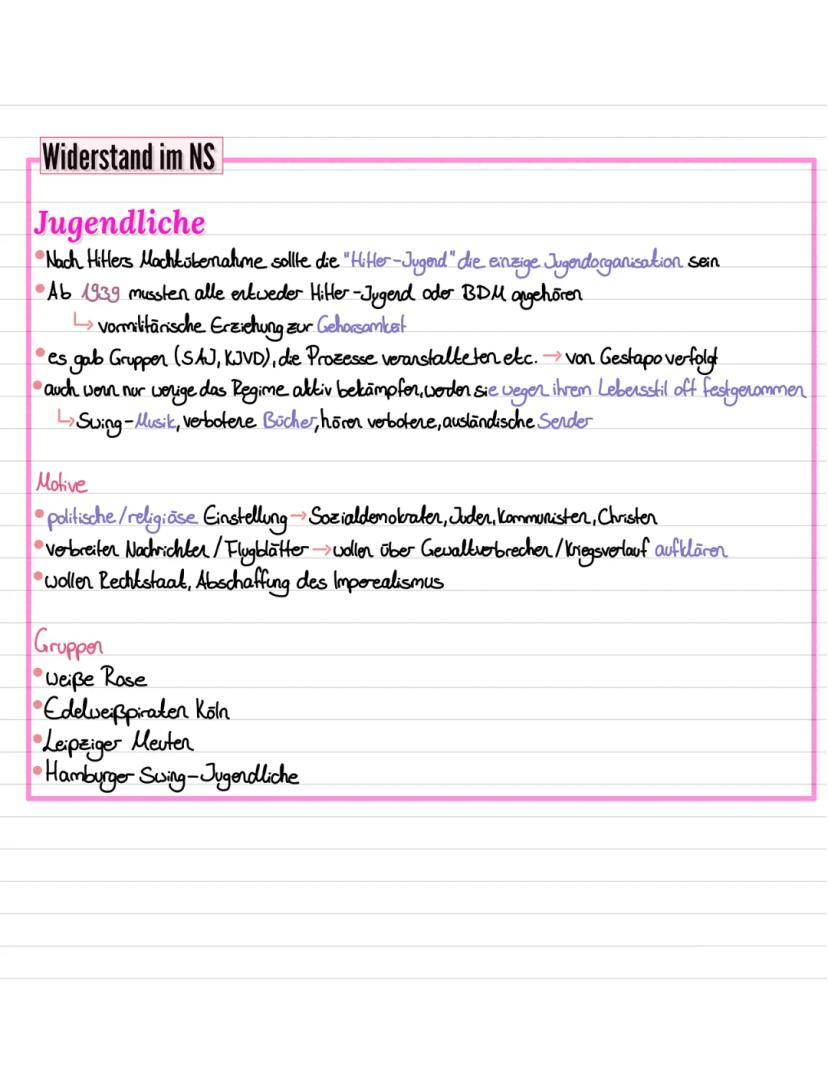 Widerstand im NS
Jugendliche
• Nach Hitlers Machtübernahme sollte die "Hitler-Jugend" die einzige Jugendorganisation sein
• Ab 1939 mussten alle entweder Hitler-Jugend oder BDM angehören
↳ vormilitärische Erziehung zur Gehorsamkeit
• es gab Gruppen (SAJ, KJVD), die Prozesse veranstalteten etc. → von Gestapo verfolgt
• auch wenn nur wenige das Regime aktiv bekämpfen, werden sie wegen ihrem Lebensstil oft festgenommen
↳ Swing-Musik, verbotene Bücher, hören verbotene, ausländische Sender
Motive
• politische/religiöse Einstellung → Sozialdemokraten, Juden, Kommunisten, Christen
• verbreiten Nachrichten / Flugblätter → wollen über Gewaltverbrechen/Kriegsverlauf aufklären
• wollen Rechtstaat, Abschaffung des Imperealismus
Gruppen
• Weiße Rose
• Edelweißpiraten Köln
• Leipziger Meuten
• Hamburger Swing-Jugendliche